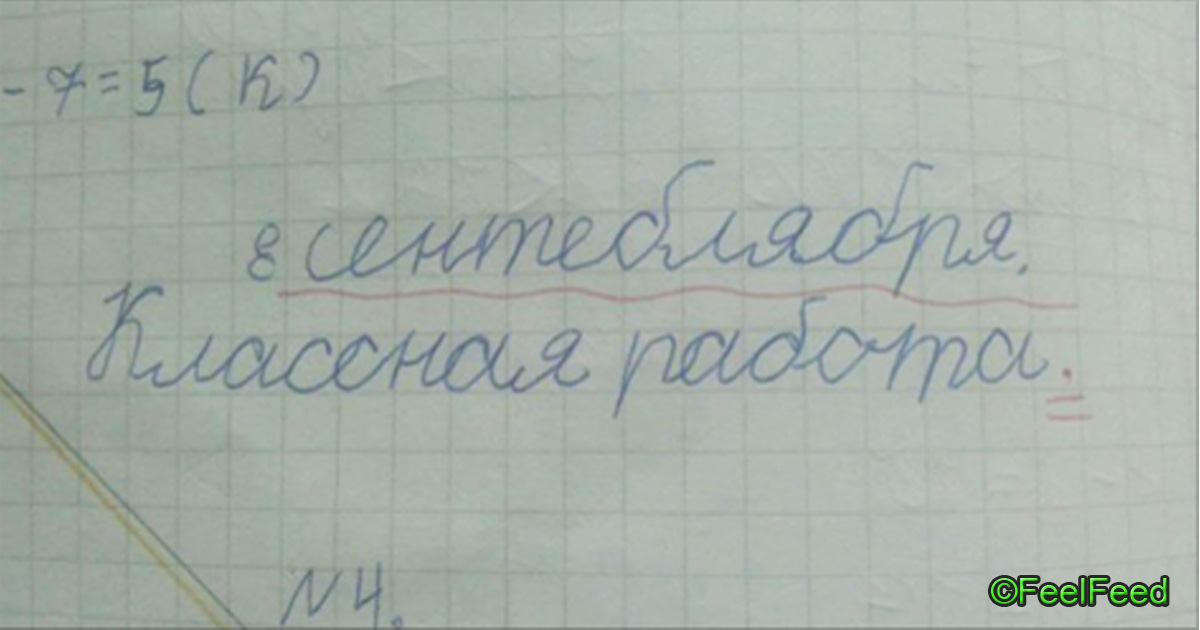 - 7 = 5 ( К )
8 сентеблябряб.
Классная работа.
N 4.
©FeelFeed